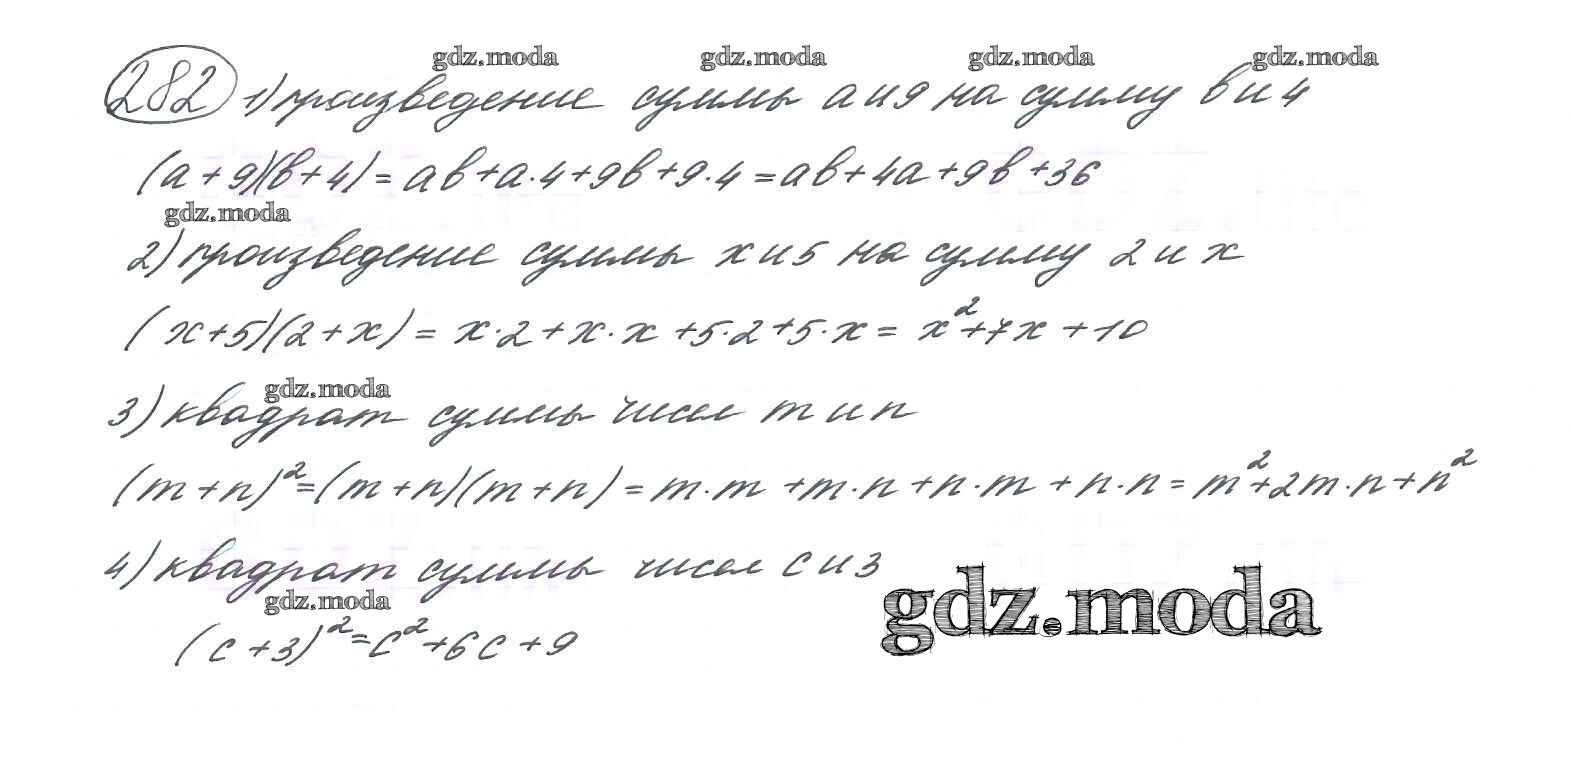 gdz.moda gdz.moda gdz.moda gdz.moda
282 1) произведение суммы a и 9 на сумму b и 4
(a + 9)(b + 4) = ab + a·4 + 9b + 9·4 = ab + 4a + 9b + 36
gdz.moda
2) произведение суммы x и 5 на сумму 2 и x
(x + 5)(2 + x) = x·2 + x·x + 5·2 + 5·x = x² + 7x + 10
gdz.moda
3) квадрат суммы чисел m и n
(m + n)² = (m + n)(m + n) = m·m + m·n + n·m + n·n = m² + 2m·n + n²
4) квадрат суммы чисел c и 3
gdz.moda
gdz.moda
(c + 3)² = c² + 6c + 9